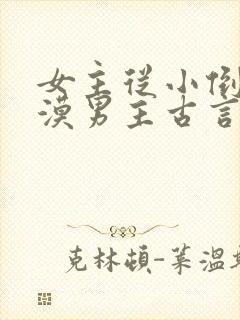 女主从小倒
漠男主古言
克林顿-莱温